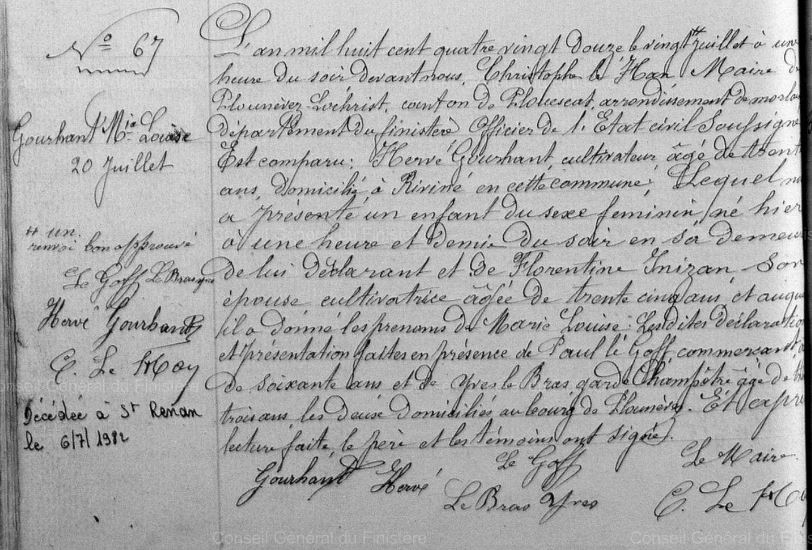 N° 67
Gourhant Mie Louise
20 Juillet
un
renvoi bon approuvé
Le Goff Le Bras Yves
Hervé Gourhant
C. Le Han
Décédée à St Renan
le 6/7/1982
L'an mil huit cent quatre vingt douze le vingt Juillet à une
heure du soir devant nous, Christophe le Han Maire de
Plounévez-Lochrist, canton de Plouescat, arrondissement de morlaix
département du finistère Officier de l'Etat civil Soussigné
Est comparu: Hervé Gourhant, cultivateur âgé de trente
ans, domicilié à en cette commune; Lequel nous
a présenté un enfant du sexe feminin, né hier
à une heure et demie du soir en sa demeure
de lui déclarant et de Florentine Inizan Son
épouse cultivatrice âgée de trente cinq ans, et auquel
il a donné les prenoms de Marie Louise: Les dites déclaration
et présentation faites en présence de Paul le Goff, commerçant,
de soixante ans et de Yves le Bras garde Champêtre âgé de
trois ans, les deux domiciliés au bourg de Plounévez. Et après
lecture faite, le père et les témoins ont signé.
Gourhant Hervé
Le Goff
Le Maire
Le Bras Yves
C. Le Han
Conseil Général du Finistère